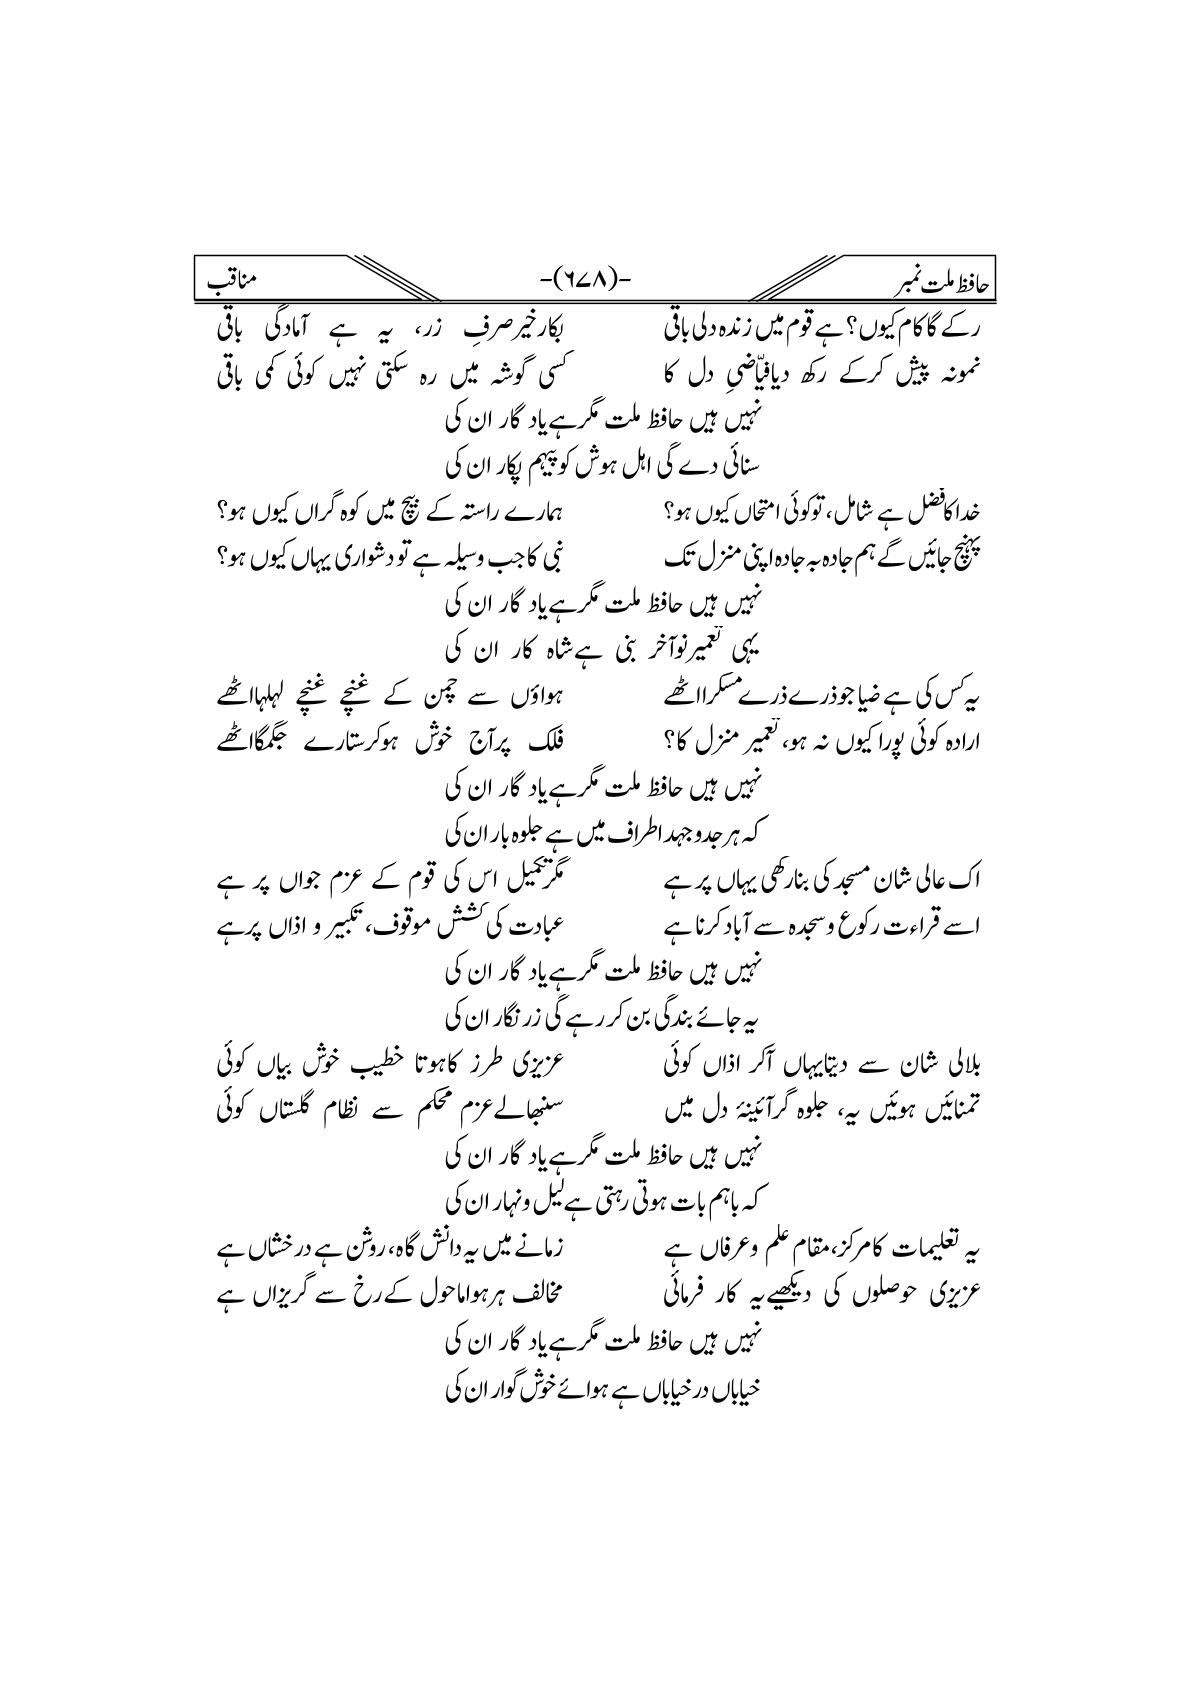 حافظ ملت نمبر -(۶۷۸)- مناقب
رکے گا کام کیوں؟ ہے قوم میں زندہ دلی باقی بکار خیر صرفِ زر، یہ ہے آمادگی باقی
نمونہ پیش کرکے رکھ دیا فیّاضیِ دل کا کسی گوشہ میں رہ سکتی نہیں کوئی کمی باقی
نہیں ہیں حافظ ملت مگر ہے یاد گار ان کی
سنائی دے گی اہل ہوش کو پیہم پکار ان کی
خدا کا فضل ہے شامل، تو کوئی امتحاں کیوں ہو؟ ہمارے راستہ کے بیچ میں کوہ گراں کیوں ہو؟
پہنچ جائیں گے ہم جادہ بہ جادہ اپنی منزل تک نبی کا جب وسیلہ ہے تو دشواری یہاں کیوں ہو؟
نہیں ہیں حافظ ملت مگر ہے یاد گار ان کی
یہی تعمیر نو آخر بنی ہے شاہ کار ان کی
یہ کس کی ہے ضیا جو ذرے ذرے مسکرا اٹھے ہواؤں سے چمن کے غنچے غنچے لہلہا اٹھے
ارادہ کوئی پورا کیوں نہ ہو، تعمیر منزل کا؟ فلک پر آج خوش ہوکر ستارے جگمگا اٹھے
نہیں ہیں حافظ ملت مگر ہے یاد گار ان کی
کہ ہر جد و جہد اطراف میں ہے جلوہ بار ان کی
اک عالی شان مسجد کی بنا رکھی یہاں پر ہے مگر تکمیل اس کی قوم کے عزم جواں پر ہے
اسے قراءت رکوع و سجدہ سے آباد کرنا ہے عبادت کی کشش موقوف، تکبیر و اذاں پر ہے
نہیں ہیں حافظ ملت مگر ہے یاد گار ان کی
یہ جائے بندگی بن کر رہے گی زر نگار ان کی
بلالی شان سے دیتا یہاں آکر اذاں کوئی عزیزی طرز کا ہوتا خطیب خوش بیاں کوئی
تمنائیں ہوئیں یہ، جلوہ گر آئینۂ دل میں سنبھالے عزم محکم سے نظام گلستاں کوئی
نہیں ہیں حافظ ملت مگر ہے یاد گار ان کی
کہ باہم بات ہوتی رہتی ہے لیل و نہار ان کی
یہ تعلیمات کا مرکز، مقام علم و عرفاں ہے زمانے میں یہ دانش گاہ، روشن ہے درخشاں ہے
عزیزی حوصلوں کی دیکھیے یہ کار فرمائی مخالف ہر ہوا ماحول کے رخ سے گریزاں ہے
نہیں ہیں حافظ ملت مگر ہے یاد گار ان کی
خیاباں در خیاباں ہے ہوائے خوش گوار ان کی